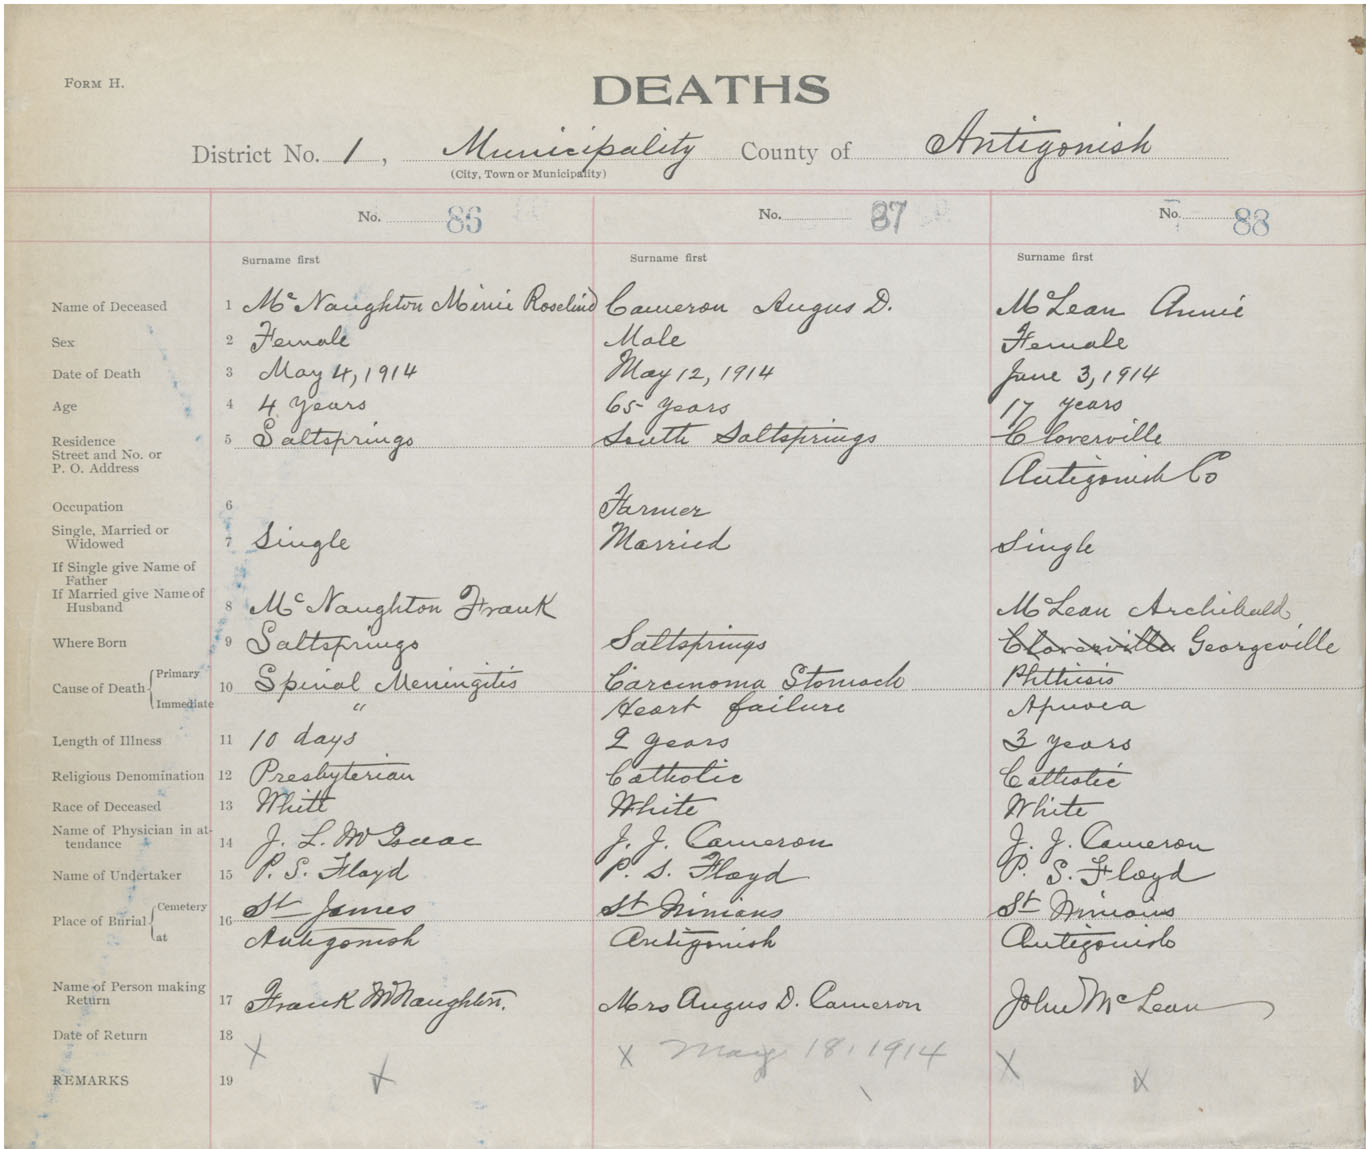 FORM H.
DEATHS
District No. 1, Municipality County of Antigonish
(City, Town or Municipality)
No. 86 No. 87 No. 88
Surname first Surname first Surname first
Name of Deceased 1 McNaughton Minie Roselind Cameron Angus D. McLean Annie
Sex 2 Female Male Female
Date of Death 3 May 4, 1914 May 12, 1914 June 3, 1914
Age 4 4 years 65 years 17 years
Residence 5 Saltsprings South Saltsprings Cloverville
Street and No. or
P. O. Address Antigonish Co
Occupation 6 Farmer
Single, Married or
Widowed 7 Single Married Single
If Single give Name of
Father
If Married give Name of
Husband 8 McNaughton Frank McLean Archibald
Where Born 9 Saltsprings Saltsprings Cloverville Georgeville
Cause of Death Primary 10 Spinal Meningitis Carcinoma Stomach Phthisis
Immediate " Heart failure Apnoea
Length of Illness 11 10 days 2 years 3 years
Religious Denomination 12 Presbyterian Catholic Catholic
Race of Deceased 13 White White White
Name of Physician in at-
tendance 14 J. L. McIsaac J. J. Cameron J. J. Cameron
Name of Undertaker 15 P. S. Floyd P. S. Floyd P. S. Floyd
Place of Burial Cemetery 16 St James St Ninians St Ninians
at Antigonish Antigonish Antigonish
Name of Person making
Return 17 Frank McNaughton. Mrs Angus D. Cameron John McLean
Date of Return 18 X X May 18, 1914 X
REMARKS 19 X X